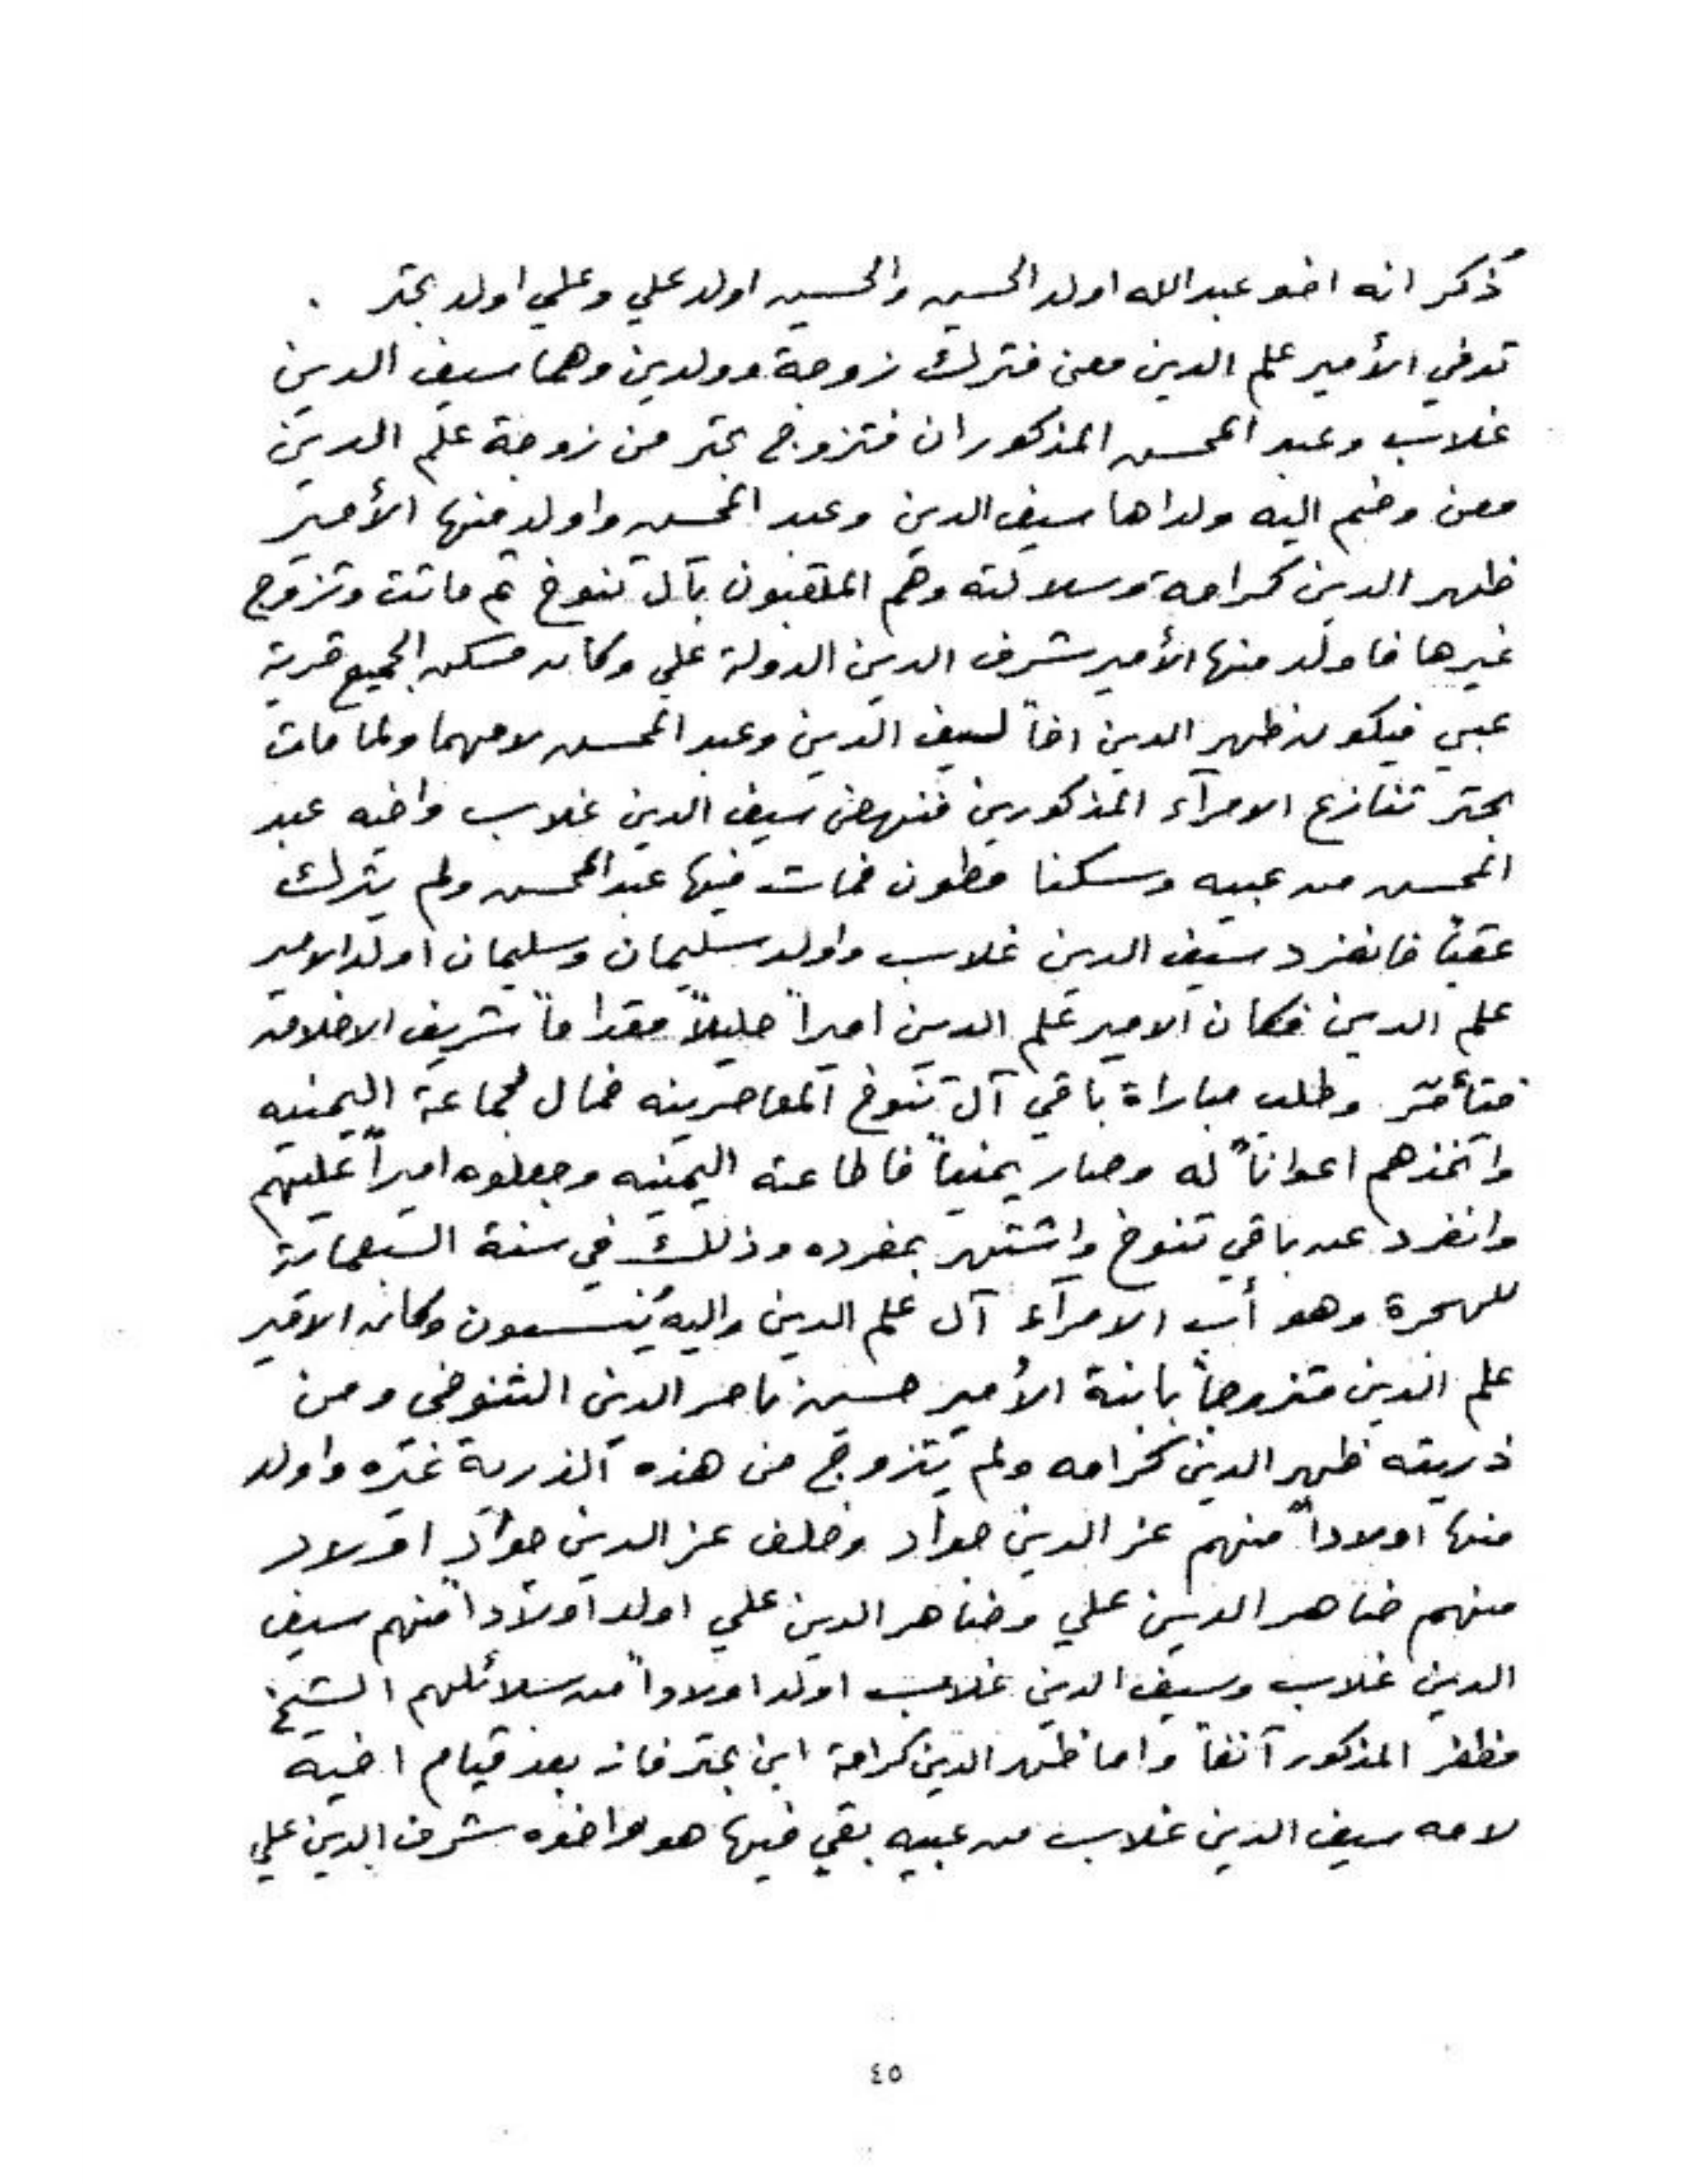 ذُكر انه اخو عبدالله اولد الحسين والحسين اولد علي وعلي اولد بحتر .
توفي الأمير علم الدين معن فترك زوجة وولدين وهما سيف الدين
غلاب وعبد المحسن المذكوران فتزوج بحتر من زوجة علم الدين
معن وضم اليه ولداها سيف الدين وعبد المحسن واولد منها الأمير
ظهير الدين كرامه وسلالته وهم الملقبون بآل تنوخ ثم ماتت وتزوج
غيرها فاولد منها الأمير شرف الدين الدولة علي وكان مسكن الجميع قرية
عبيي فيكون ظهير الدين اخاً لسيف الدين وعبد المحسن لامهما ولما مات
بحتر تنازع الامرآء المذكورين فنهض سيف الدين غلاب واخيه عبد
المحسن من عبيه وسكنا مطون فمات فيها عبد المحسن ولم يترك
عقباً فانفرد سيف الدين غلاب واولد سليمان وسليمان اولد الامير
علم الدين فكان الامير علم الدين اميراً جليلاً مقداماً شريف الاخلاق
فتأمّر وطلب مباراة باقي آل تنوخ المعاصرينه فمال لجماعة اليمنيه
واتخذهم اعواناً له وصار يمنياً فاطاعته اليمنيه وجعلوه اميراً عليهم
وانفرد عن باقي تنوخ واشتهر بمفرده وذلك في سنة السبعماتة
للهجرة وهو أب الامرآء آل علم الدين واليه يُنسبون وكان الامير
علم الدين متزوجاً بابنة الأمير حسين ناصر الدين التنوخي ومن
ذريته ظهير الدين كرامه ولم يتزوج من هذه الذرية غيره واولد
منها اولاداً منهم عز الدين جواد وخلف عز الدين جواد اولاد
منهم ضاهر الدين علي وضاهر الدين علي اولد اولاداً منهم سيف
الدين غلاب وسيف الدين غلاب اولد اولاداً من سلائلهم الشيخ
مظفر المذكور آنفاً واما ظهير الدين كرامة ابن بحتر فانه بعد قيام اخيه
لامه سيف الدين غلاب من عبيه بقي فيها هو واخوه شرف الدين علي
٤٥